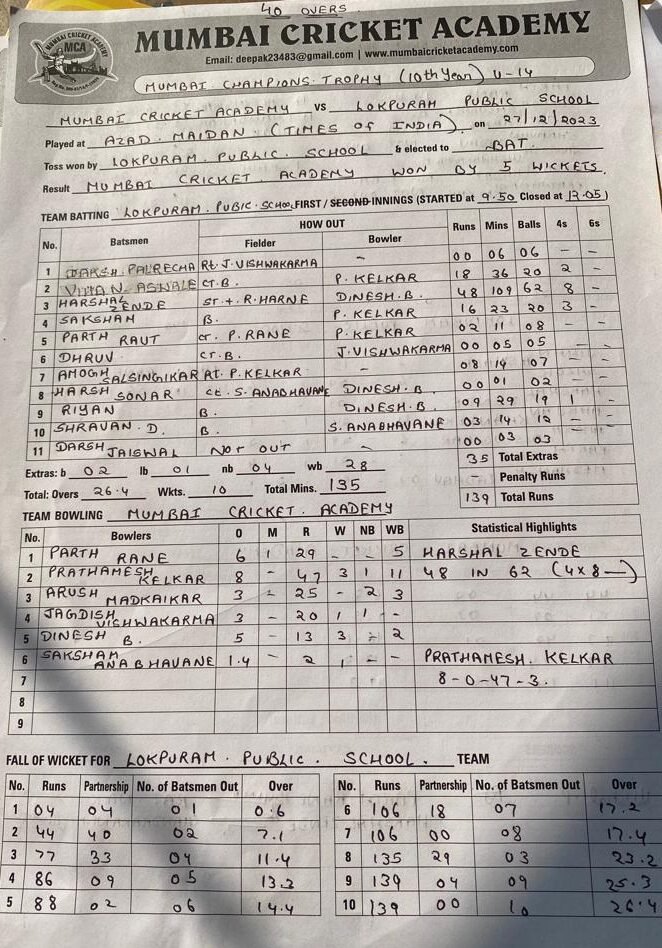 40 OVERS
MUMBAI CRICKET ACADEMY
MUMBAI CRICKET ACADEMY
MCA
Email: deepak23483@gmail.com | www.mumbaicricketacademy.com
MUMBAI CHAMPIONS TROPHY (10th Year) U-14
MUMBAI CRICKET ACADEMY vs LOKPURAM PUBLIC SCHOOL
Played at AZAD MAIDAN (TIMES OF INDIA) on 27/12/2023
Toss won by LOKPURAM PUBLIC SCHOOL & elected to BAT.
Result MUMBAI CRICKET ACADEMY WON BY 5 WICKETS.
TEAM BATTING LOKPURAM PUBIC SCHOOL FIRST / SECOND INNINGS (STARTED at 9.50 Closed at 13.05)
No. Batsmen HOW OUT Runs Mins Balls 4s 6s
Fielder Bowler
1 DAKSH PALRECHA Rt. J. VISHWAKARMA - 00 06 06 - -
2 VIHAN ASWALE CT. B. P. KELKAR 18 36 20 2 -
3 HARSHAL ZENDE ST. + R. HARNE DINESH. B. 48 109 62 8 -
4 SAKSHAM B. P. KELKAR 16 23 20 3 -
5 PARTH RAUT CT. P. RANE P. KELKAR 02 11 08 - -
6 DHRUV CT. B. J. VISHWAKARMA 00 05 05 - -
7 AMOGH SALSINGIKAR Rt. P. KELKAR - 08 14 07 - -
8 HARSH SONAR Ct. S. ANABHAVANE DINESH. B 00 01 02 - -
9 RIYAN B. DINESH. B. 09 29 19 1 -
10 SHRAVAN D. B. S. ANABHAVANE 03 14 12 - -
11 DARSH JAISWAL NOT OUT - 00 03 03 - -
Extras: b 02 lb 01 nb 04 wb 28 35 Total Extras
- Penalty Runs
Total: Overs 26.4 Wkts. 10 Total Mins. 135 139 Total Runs
TEAM BOWLING MUMBAI CRICKET ACADEMY
No. Bowlers O M R W NB WB Statistical Highlights
1 PARTH RANE 6 1 29 - - 5 HARSHAL ZENDE
2 PRATHAMESH KELKAR 8 - 47 3 1 11 48 IN 62 (4x8 —)
3 ARUSH MADKAIKAR 3 - 25 - 2 3
4 JAGDISH VISHWAKARMA 3 - 20 1 1 -
5 DINESH B. 5 - 13 3 - 2
6 SAKSHAM ANABHAVANE 1.4 - 2 1 - - PRATHAMESH. KELKAR
7 8-0-47-3.
8
9
FALL OF WICKET FOR LOKPURAM PUBLIC SCHOOL. TEAM
No. Runs Partnership No. of Batsmen Out Over
1 04 04 01 0.6
2 44 40 02 7.1
3 77 33 04 11.4
4 86 09 05 13.2
5 88 02 06 14.4
No. Runs Partnership No. of Batsmen Out Over
6 106 18 07 17.2
7 106 00 08 17.4
8 135 29 03 23.2
9 139 04 09 25.3
10 139 00 10 26.4